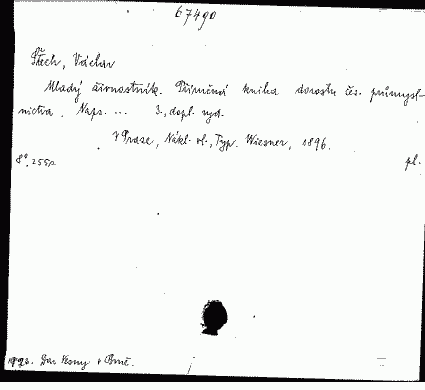 67490
Štech, Václav
Mladý živnostník. Příručná kniha dorostu čes. průmysl-
nictva. Naps. ... 3., dopl. vyd.
V Praze, Nákl. vl., Typ. Wiesner, 1896.
8°. 255 s. pl.
Dar Vesny v Brně.